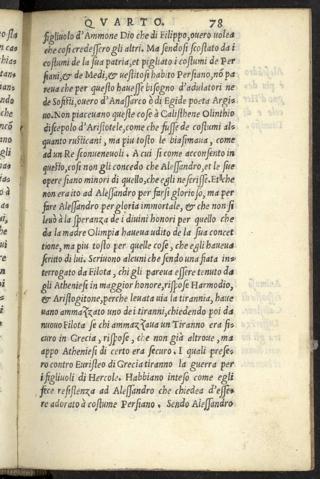 QVARTO. 78
figliuolo d'Ammone Dio che di Filippo, ouero uolea
che cosi credessero gli altri. Ma sendosi scostato da i
costumi de la sua patria, et pigliato i costumi de Per
siani, & de Medi, & uestitosi habito Persiano, nõ pa
reua che per questo hauesse bisogno d'adulatori ne
de Sofisti, ouero d'Anassarco ò di Egide poeta Argi=
uo. Non piaceuano queste cose à Calisthene Olinthio
discepolo d'Aristotele, come che fusse de costumi als
quanto rusticani, ma piu tosto le biasimaua, come
ad un Re sconueneuoli. A cui si come acconsento in
questo, cosi non gli concedo che Alessandro, et le sue
opere siano minori di quello, che egli ne scrisse. Et che
non era ito ad Alessandro per farsi glorioso, ma per
fare Alessandro per gloria immortale, & che non si
leuò à la speranza de i diuini honori per quello che
da la madre Olimpia haueua udito de la sua concet
tione, ma piu tosto per quelle cose, che egli haueua
scritto di lui. Scriuono alcuni che sendo una fiata in=
terrogato da Filota, chi gli pareua essere tenuto da
gli Atheniesi in maggior honore, rispose Harmodio,
& Aristogitone, perche leuata uia la tirannia, haue
uano ammazzato uno de i tiranni, chiedendo poi da
nuouo Filota se chi ammazzaua un Tiranno era si=
curo in Grecia, rispose, che non già altroue, ma
appo Atheniesi di certo era securo. I quali prese=
ro contro Euristeo di Grecia tiranno la guerra per
i figliuoli di Hercole. Habbiano inteso come egli
fece resistenza ad Alessandro che chiedea d'esse=
re adorato à costume Persiano. Sendo Alessandro